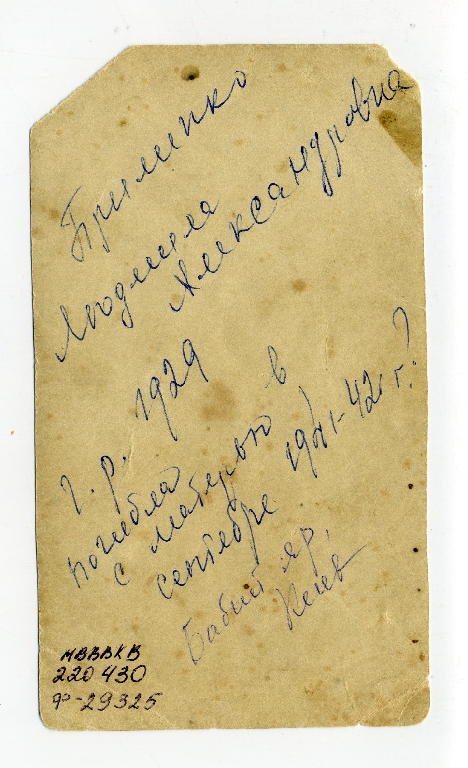 Примипко
Людмила
Александровна
г. р. 1929
погибла
с матерью в
сентябре 1941-42 г.?
Бабий яр,
Киев
МВВВКВ
220 430
Ф-29325